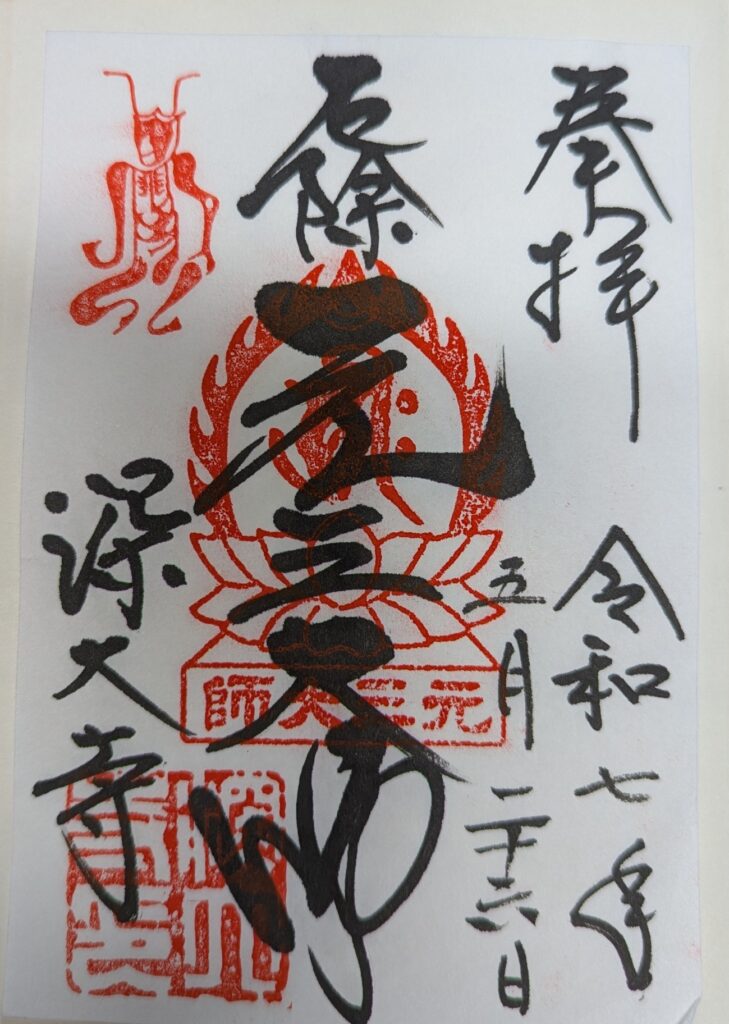 奉拝
令和七年
五月二十六日
厄除
元三大師
元三大師
深大寺